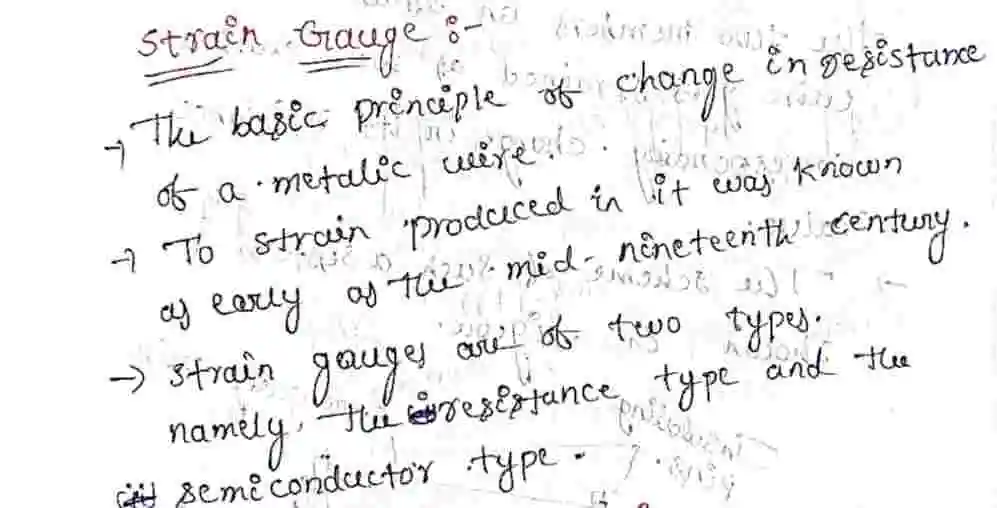 Strain Gauge :-
→ The basic principle of change in resistance
of a metalic wire.
→ To strain produced in it was known
as early as the mid-nineteenth century.
→ strain gauges are of two types.
namely, the resistance type and the
semiconductor type.